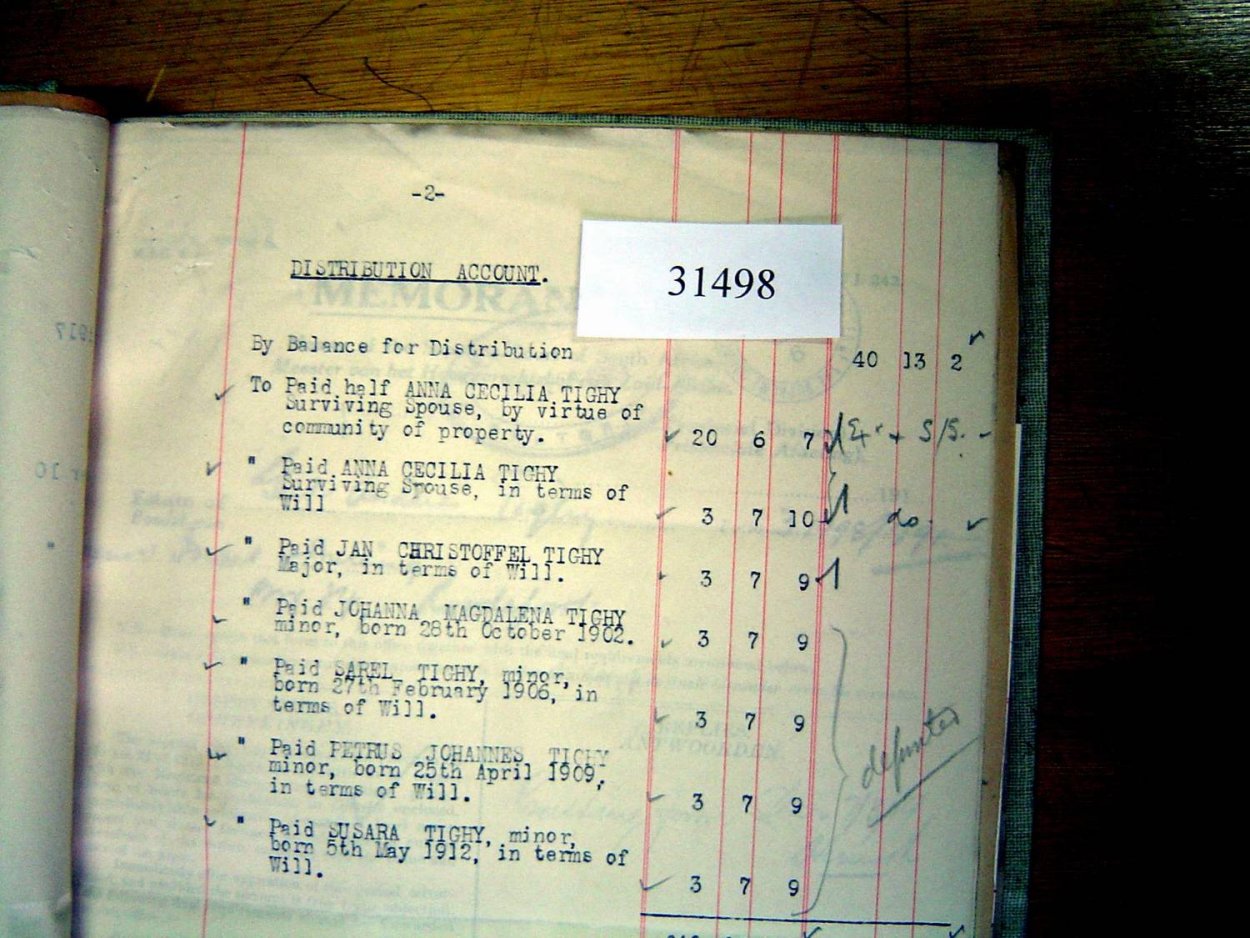 -2-
31498
DISTRIBUTION ACCOUNT.
By Balance for Distribution 40 13 2
To Paid half ANNA CECILIA TIGHY
Surviving Spouse, by virtue of
community of property. 20 6 7
" Paid ANNA CECILIA TIGHY
Surviving Spouse, in terms of
Will 3 7 10 do.
" Paid JAN CHRISTOFFEL TIGHY
Major, in terms of Will. 3 7 9
" Paid JOHANNA MAGDALENA TIGHY
minor, born 28th October 1902. 3 7 9
" Paid SAREL TIGHY, minor,
born 27th February 1906, in
terms of Will. 3 7 9
" Paid PETRUS JOHANNES TIGHY
minor, born 25th April 1909,
in terms of Will. 3 7 9
" Paid SUSARA TIGHY, minor,
born 5th May 1912, in terms of
Will. 3 7 9